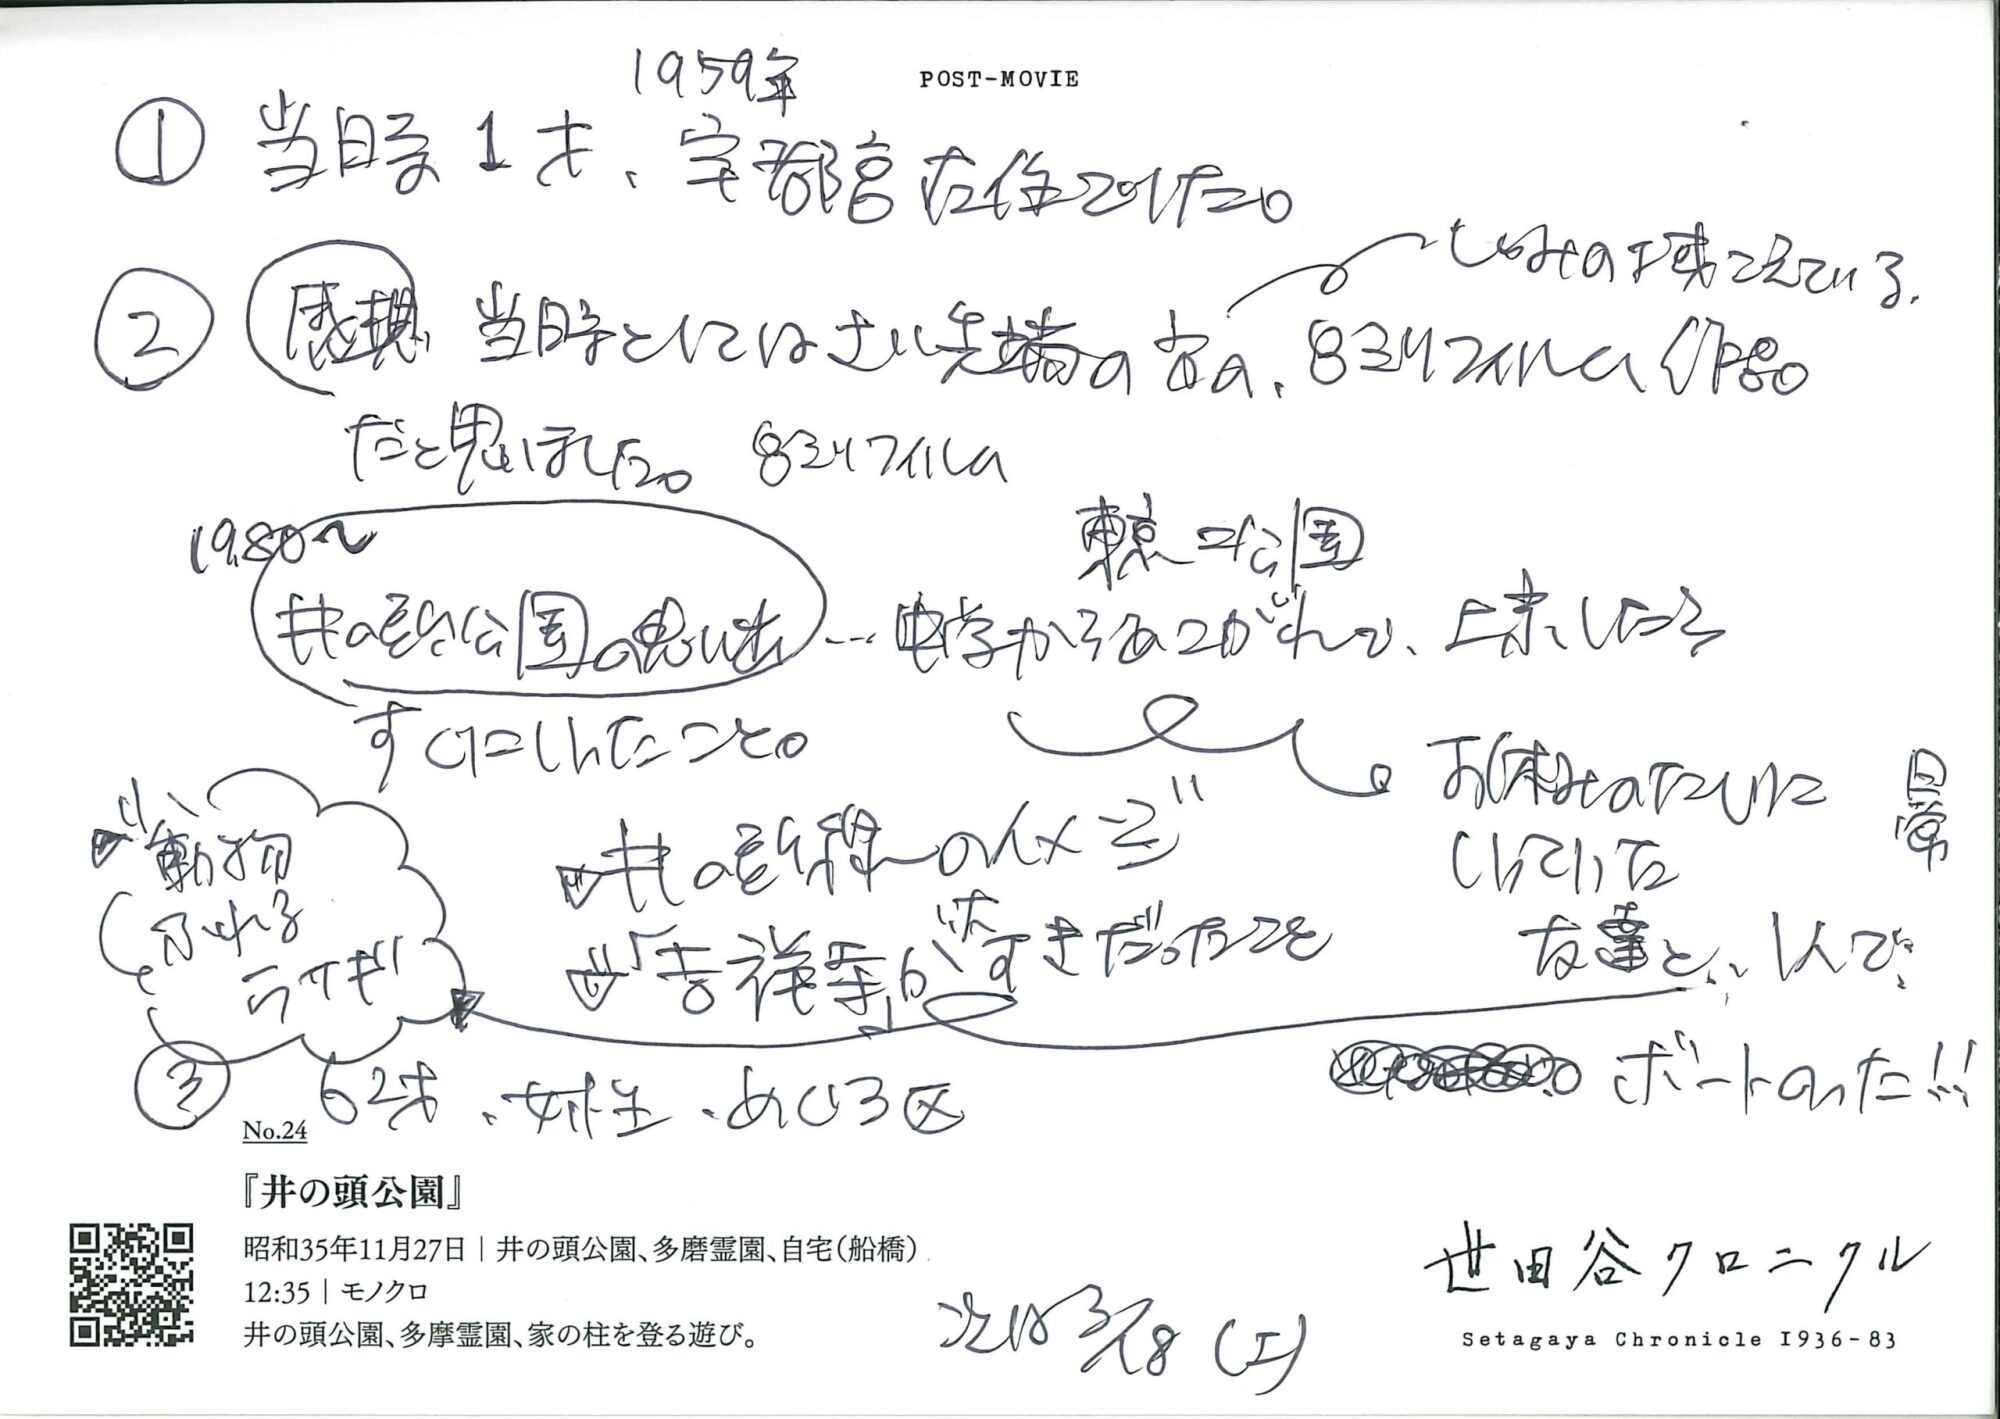 POST-MOVIE
1959年
① 当時1才、宇都宮在住でした。
② 感想 当時としてはさい先端の 8ミリフィルム作品
だと思いました。 8ミリフィルム
1980〜
東京の公園
井の頭公園の思い出 … 中学からあこがれて、上京したら
すぐにいったこと。
お休みのたびに
いっていた
日常
井の頭線のイメージ
「吉祥寺」が大すきだったこと
友達と、1人で
ボートのった!!
動物
ふれる
ウサギ
③ 62才、女性、めぐろ区
No.24
『井の頭公園』
昭和35年11月27日｜井の頭公園、多磨霊園、自宅(船橋)
12:35｜モノクロ
井の頭公園、多摩霊園、家の柱を登る遊び。
次は3/18(土)
世田谷クロニクル
Setagaya Chronicle 1936-83